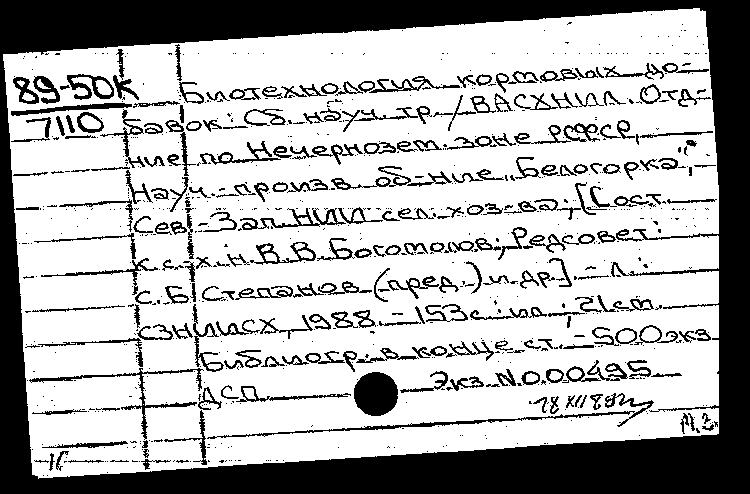 89-50К
7110
Биотехнология кормовых до-
бавок: Сб. науч. тр. / ВАСХНИЛ. Отд-
ние по Нечернозем. зоне РСФСР,
Науч.-произв. об-ние „Белогорка",
Сев.-Зап. НИИ сел. хоз-ва; [Сост.
к.с.-х.н. В.В. Богомолов; Редсовет:
С.Б. Степанов (пред.) и др.]. - Л.:
СЗНИИСХ, 1988. - 153с.: ил.; 21см.
Библиогр. в конце ст. - 500 экз.
ДСП Экз. N000495
18 XII 89
М.2